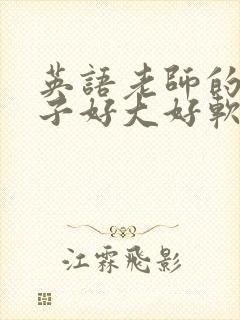 英語老師的
子好大好軟
江霖飛影